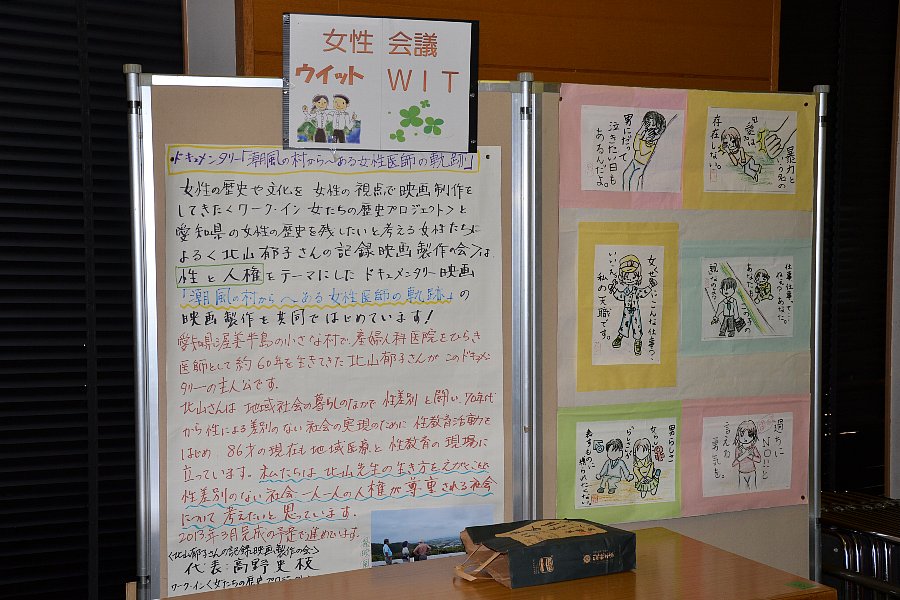 女性 会議
ウイット WIT
ドキュメンタリー「潮風の村から～ある女性医師の軌跡」
女性の歴史や文化を 女性の視点で映画制作を
してきた〈ワーク・イン 女たちの歴史プロジェクト〉と
愛知県の女性の歴史を残したいと考える女性たちに
よる〈北山郁子さんの記録映画製作の会〉は、
性と人権をテーマにした ドキュメンタリー映画
「潮風の村から～ある女性医師の軌跡」の
映画製作を共同ではじめています!
愛知県渥美半島の小さな村で、産婦人科医院をひらき
医師として約60年を生きてきた北山郁子さんが このドキュメン
タリーの主人公です。
北山さんは 地域社会の暮らしのなかで 性差別と闘い、70年代
から性による差別のない社会の実現のために 性教育活動を
はじめ、86才の現在も地域医療と性教育の現場に
立っています。私たちは 北山先生の生き方をえがくことで
性差別のない社会 一人一人の人権が尊重される社会
について 考えたいと思っています。
2013年3月完成の予定で進めています。
〈北山郁子さんの記録映画製作の会〉
代表:高野史枝
ワーク・イン〈女たちの歴史プロジェクト〉
男にだって
泣きたい日も
あるんだよ。
暴力と
いう名の
愛は
存在しない。
女がぜったいにこんな仕事?
いいえ
私の天職です。
仕事、仕事って
あなたも
この子の
親じゃないの?
男らしさ
女らしさ
って
らしさって
過ちに
NO!!と
言える
勇気を。